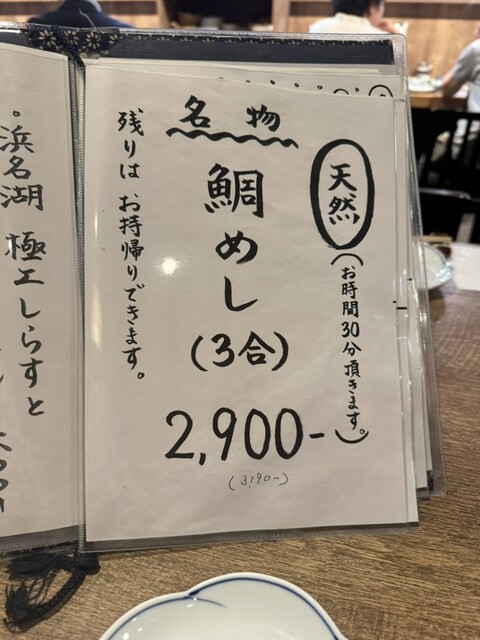 天然
(お時間30分頂きます。)
名物
鯛めし
(3合)
2,900-
(3,190-)
残りは お持帰りできます。
浜名湖 極上しらすと